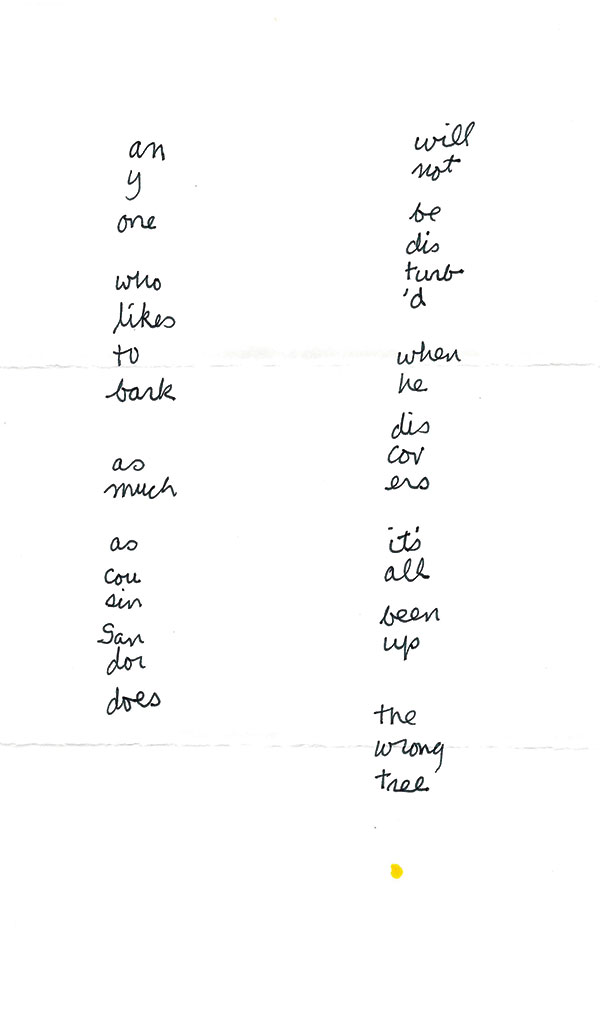 an
y
one
who
likes
to
bark
as
much
as
cou
sin
San
dor
does
will
not
be
dis
turb
'd
when
he
dis
cov
ers
it's
all
been
up
the
wrong
tree